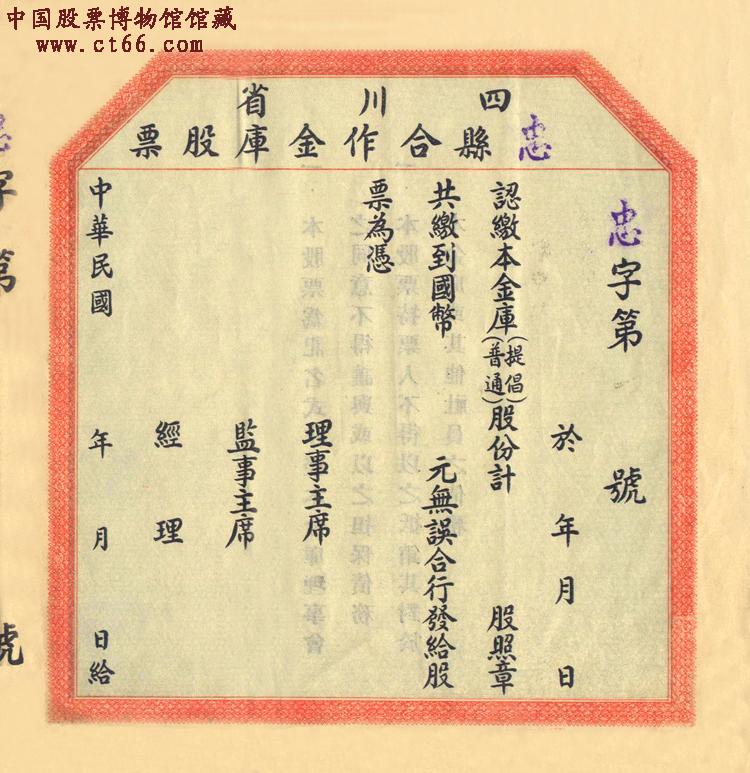 中国股票博物馆馆藏
www.ct66.com
四川省
忠縣合作金庫股票
忠字第 號
於 年 月 日
認繳本金庫(提倡普通)股份計 股照章
共繳到國幣 元無誤合行發給股
票為憑
理事主席
監事主席
經理
中華民國 年 月 日給
忠字第 號